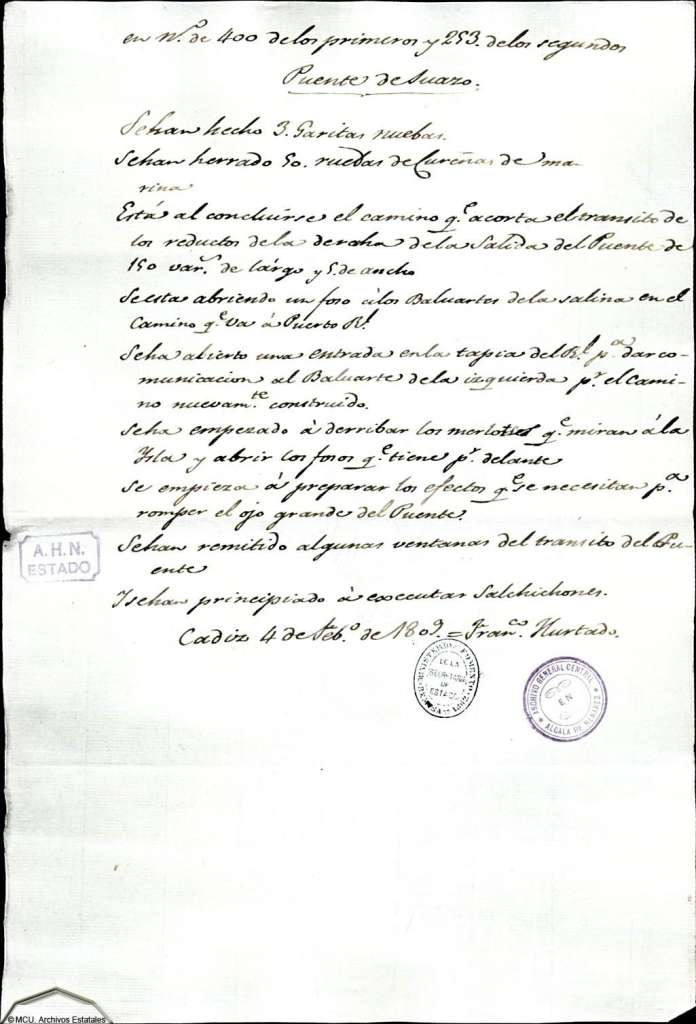 en N.º de 400 de los primeros y 253. de los segundos
Puente de Suazo.
Sehan hecho 3. Garitas nuebas.
Sehan herrado 50. ruedas de Cureñas de ma-
rina
Está al concluirse el camino q.e acorta el transito de
los reductos dela deraha dela Salida del Puente de
150 var.s de lárgo y 5. de ancho
Se esta abriendo un foso álos Baluartes dela salina en el
Camino q.e va á Puerto R.l
Seha abierto una entrada enla tapia del R.l p.a dar co-
municacion al Baluarte dela izquierda p.r el Cami-
no nuevam.te construido.
Seha empezado á derribar los q.e miran ála
Ysla y abrir los fosos q.e tiene p.r delante
Se empieza á preparar los efectos q.e se necesitan p.a
romper el ojo grande del Puente.
Sehan remitido algunas ventanas del transito del Pu-
ente
Y sehan principiado á executar Salchichones.
Cadiz 4 de Feb.º de 1809. = Fran.co Hurtado.
A.H.N.
ESTADO
MINISTERIO FOMENTO
DE LA
ESTADO
ARCHIVO GENERAL CENTRAL
EN
ALCALA DE HENARES
© MCU. Archivos Estatales